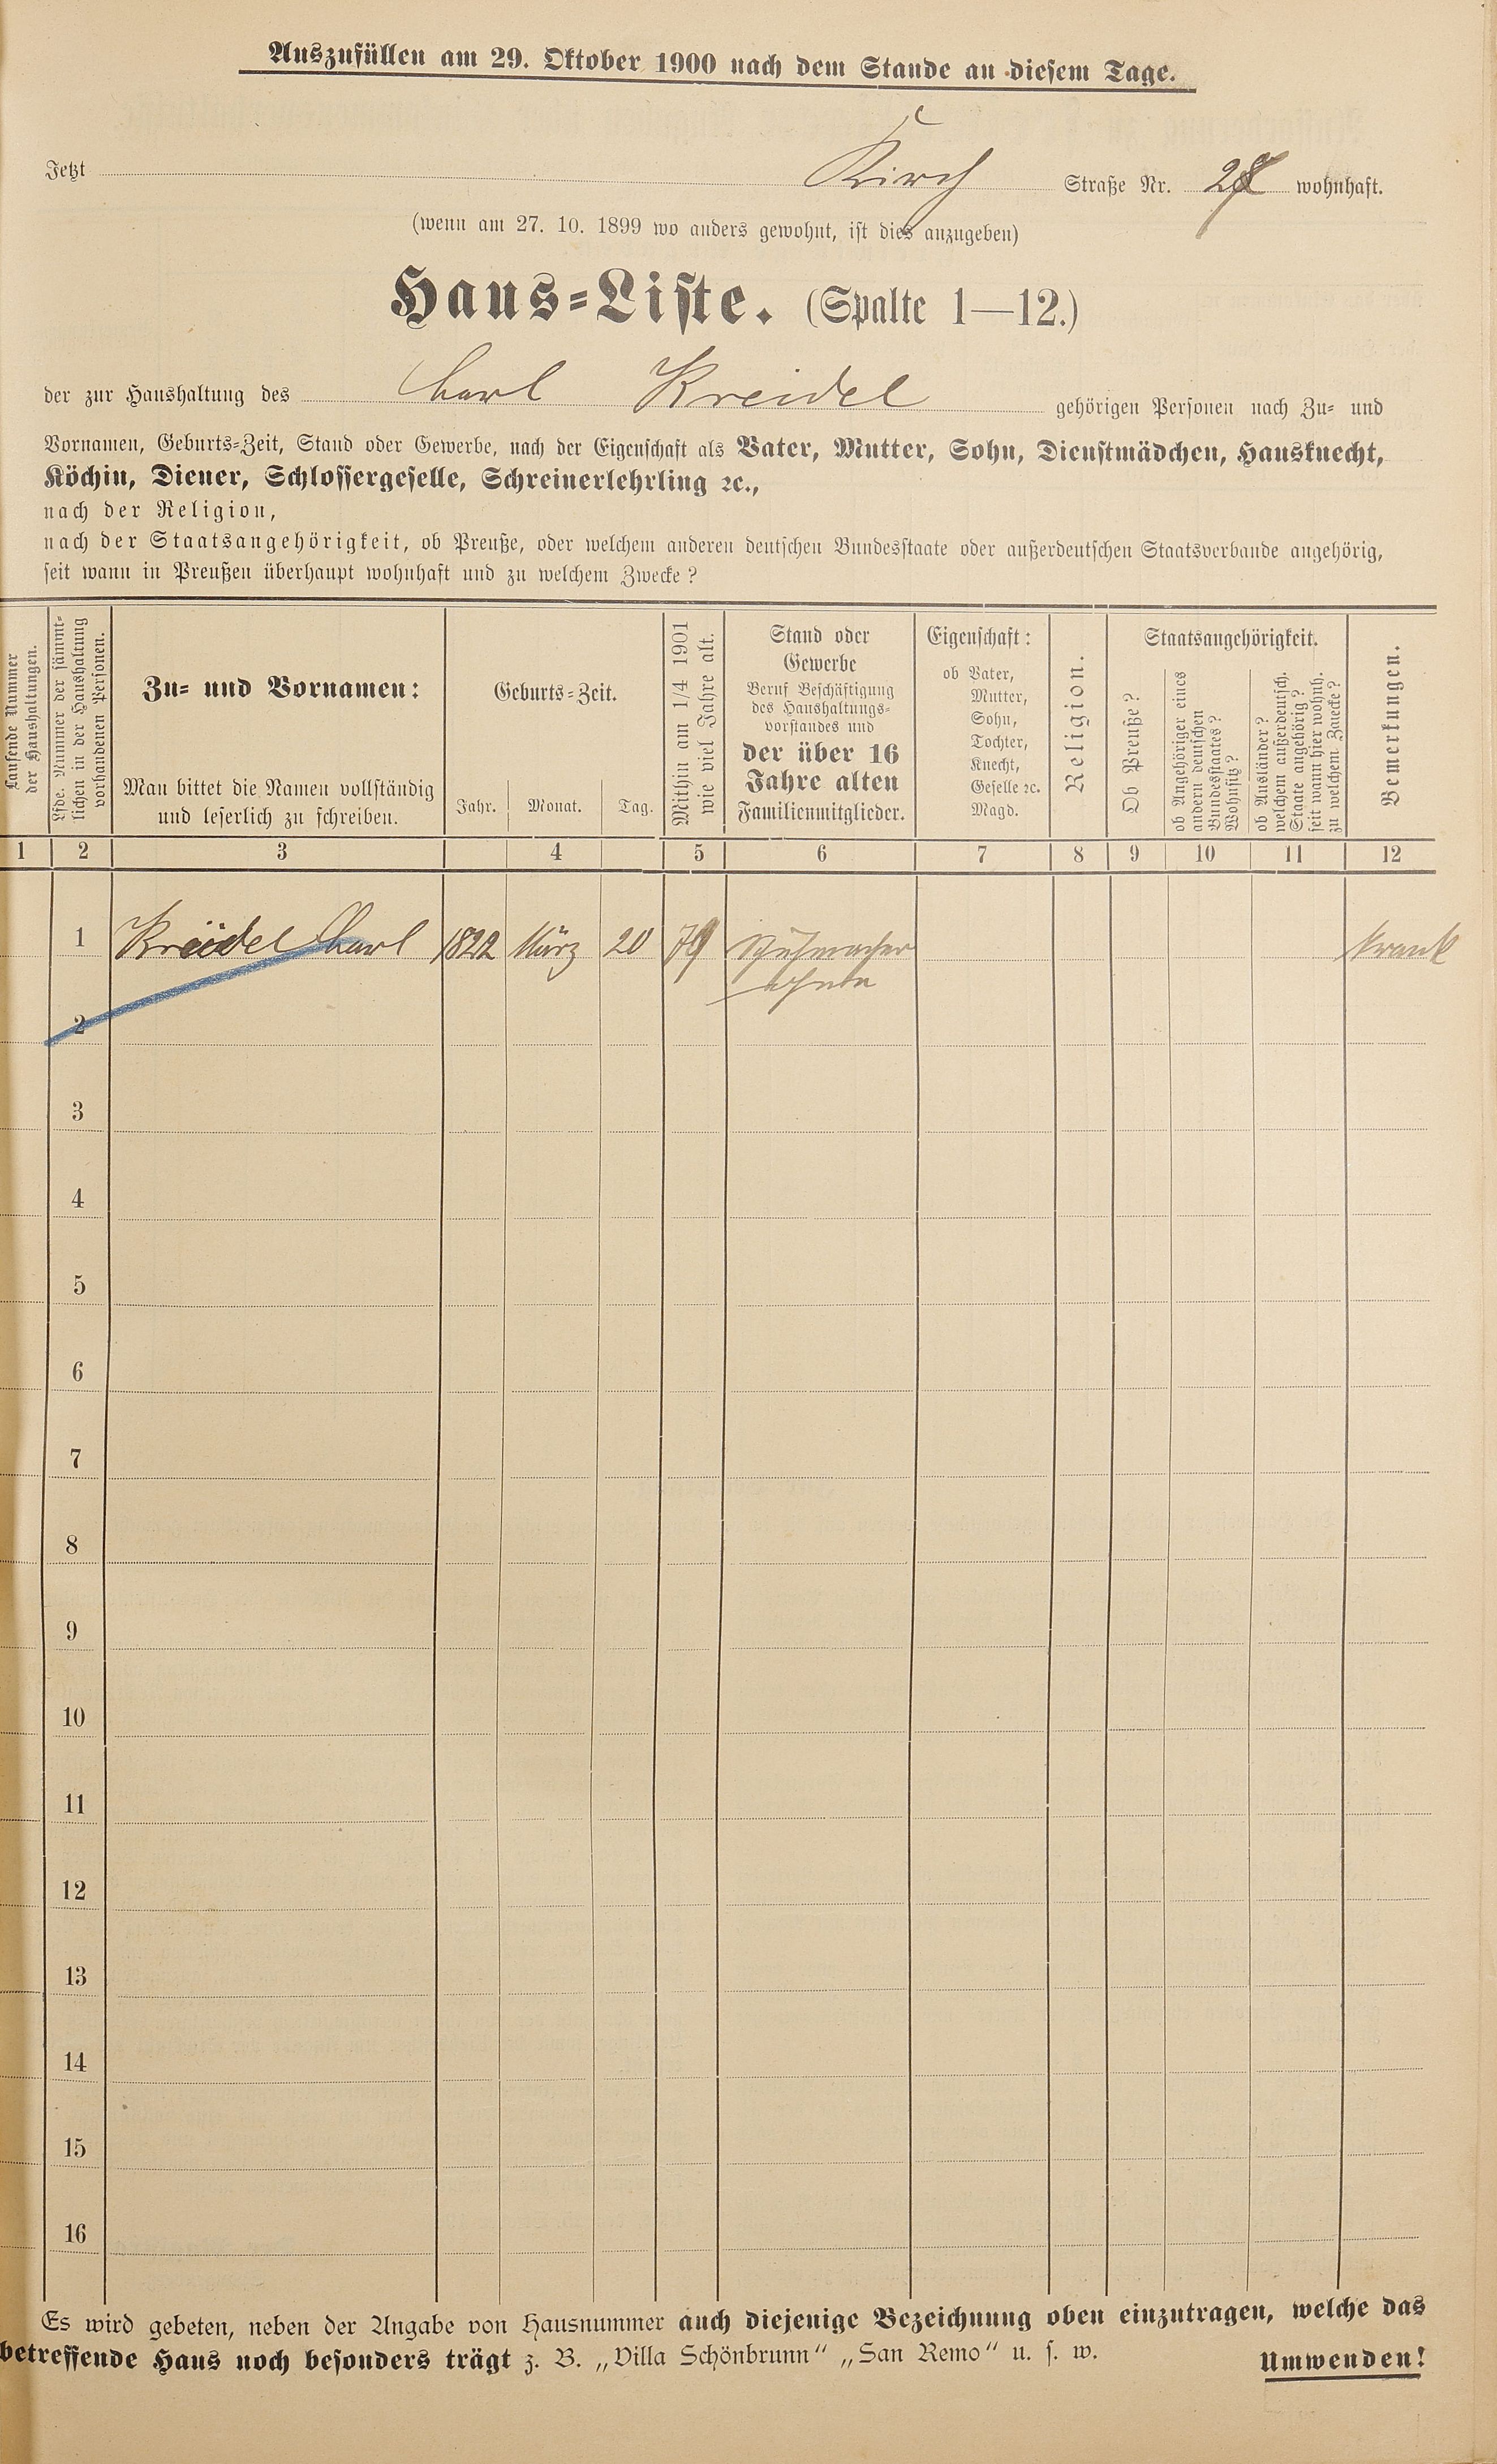 Auszufüllen am 29. Oktober 1900 nach dem Stande an diesem Tage.
Jetzt Kirch Straße Nr. 27 wohnhaft.
(wenn am 27. 10. 1899 wo anders gewohnt, ist dies anzugeben)
Haus-Liste. (Spalte 1—12.)
der zur Haushaltung des Carl Kreidel gehörigen Personen nach Zu- und
Vornamen, Geburts-Zeit, Stand oder Gewerbe, nach der Eigenschaft als Vater, Mutter, Sohn, Dienstmädchen, Hausknecht,
Köchin, Diener, Schlossergeselle, Schreinerlehrling ꝛc.,
nach der Religion,
nach der Staatsangehörigkeit, ob Preuße, oder welchem anderen deutschen Bundesstaate oder außerdeutschen Staatsverbande angehörig,
seit wann in Preußen überhaupt wohnhaft und zu welchem Zwecke?
Laufende Nummer
der Haushaltungen.
Lfde. Nummer der sämmt-
lichen in der Haushaltung
vorhandenen Personen.
Zu- und Vornamen:
Man bittet die Namen vollständig
und leserlich zu schreiben.
Geburts-Zeit.
Jahr. Monat. Tag.
Mithin am 1/4 1901
wie viel Jahre alt.
Stand oder
Gewerbe
Beruf Beschäftigung
des Haushaltungs-
vorstandes und
der über 16
Jahre alten
Familienmitglieder.
Eigenschaft:
ob Vater,
Mutter,
Sohn,
Tochter,
Knecht,
Geselle ꝛc.
Magd.
Religion.
Staatsangehörigkeit.
Ob Preuße?
ob Angehöriger eines
andern deutschen
Bundesstaates?
Wohnsitz?
ob Ausländer?
welchem außerdeutsch.
Staate angehörig?
seit wann hier wohnh.
zu welchem Zwecke?
Bemerkungen.
1 2 3 4 5 6 7 8 9 10 11 12
1 Kreidel Carl 1822 März 20 79 Schuhmacher krank
2
3
4
5
6
7
8
9
10
11
12
13
14
15
16
Es wird gebeten, neben der Angabe von Hausnummer auch diejenige Bezeichnung oben einzutragen, welche das
betreffende Haus noch besonders trägt z. B. „Villa Schönbrunn“ „San Remo“ u. s. w.
Umwenden!